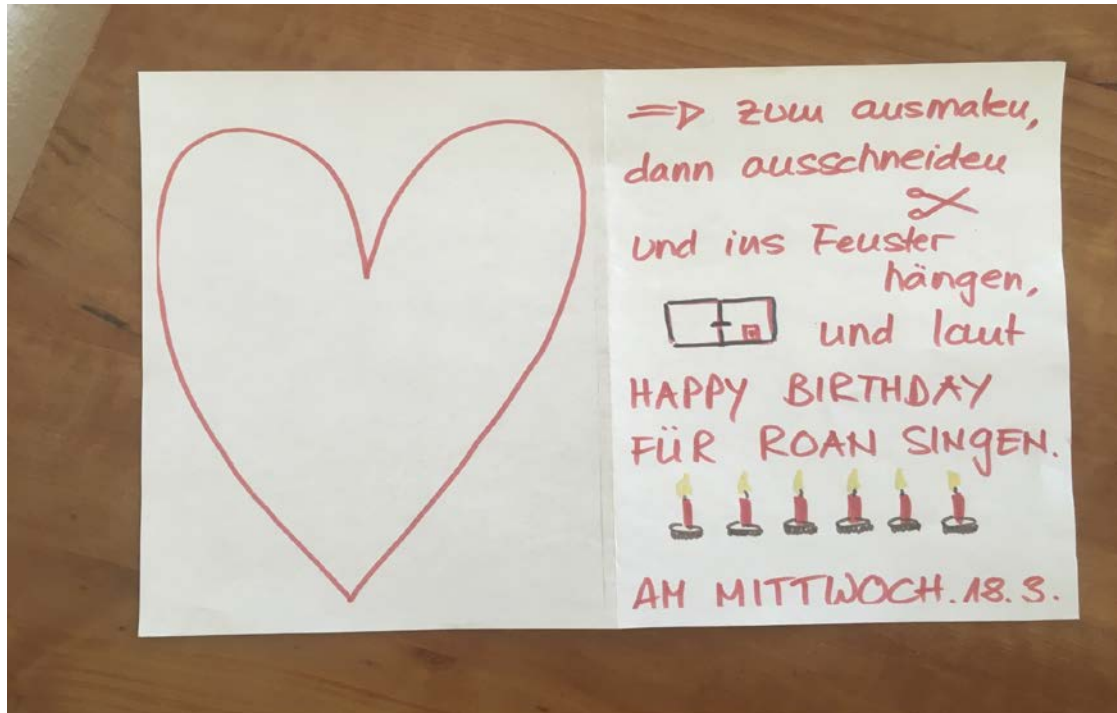 zum ausmalen,
dann ausschneiden
und ins Fenster
hängen,
und laut
HAPPY BIRTHDAY
FÜR ROAN SINGEN.
AM MITTWOCH. 18. 3.